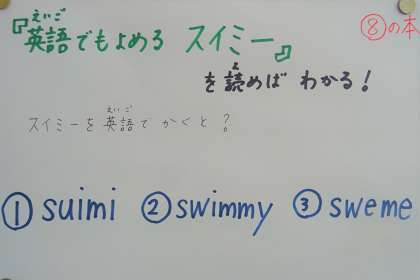 ⑧の本
えいご
『英語でもよめる スイミー』
よ
を読めば わかる!
えいご
スイミーを英語で かくと ?
① suimi ② swimmy ③ sweme